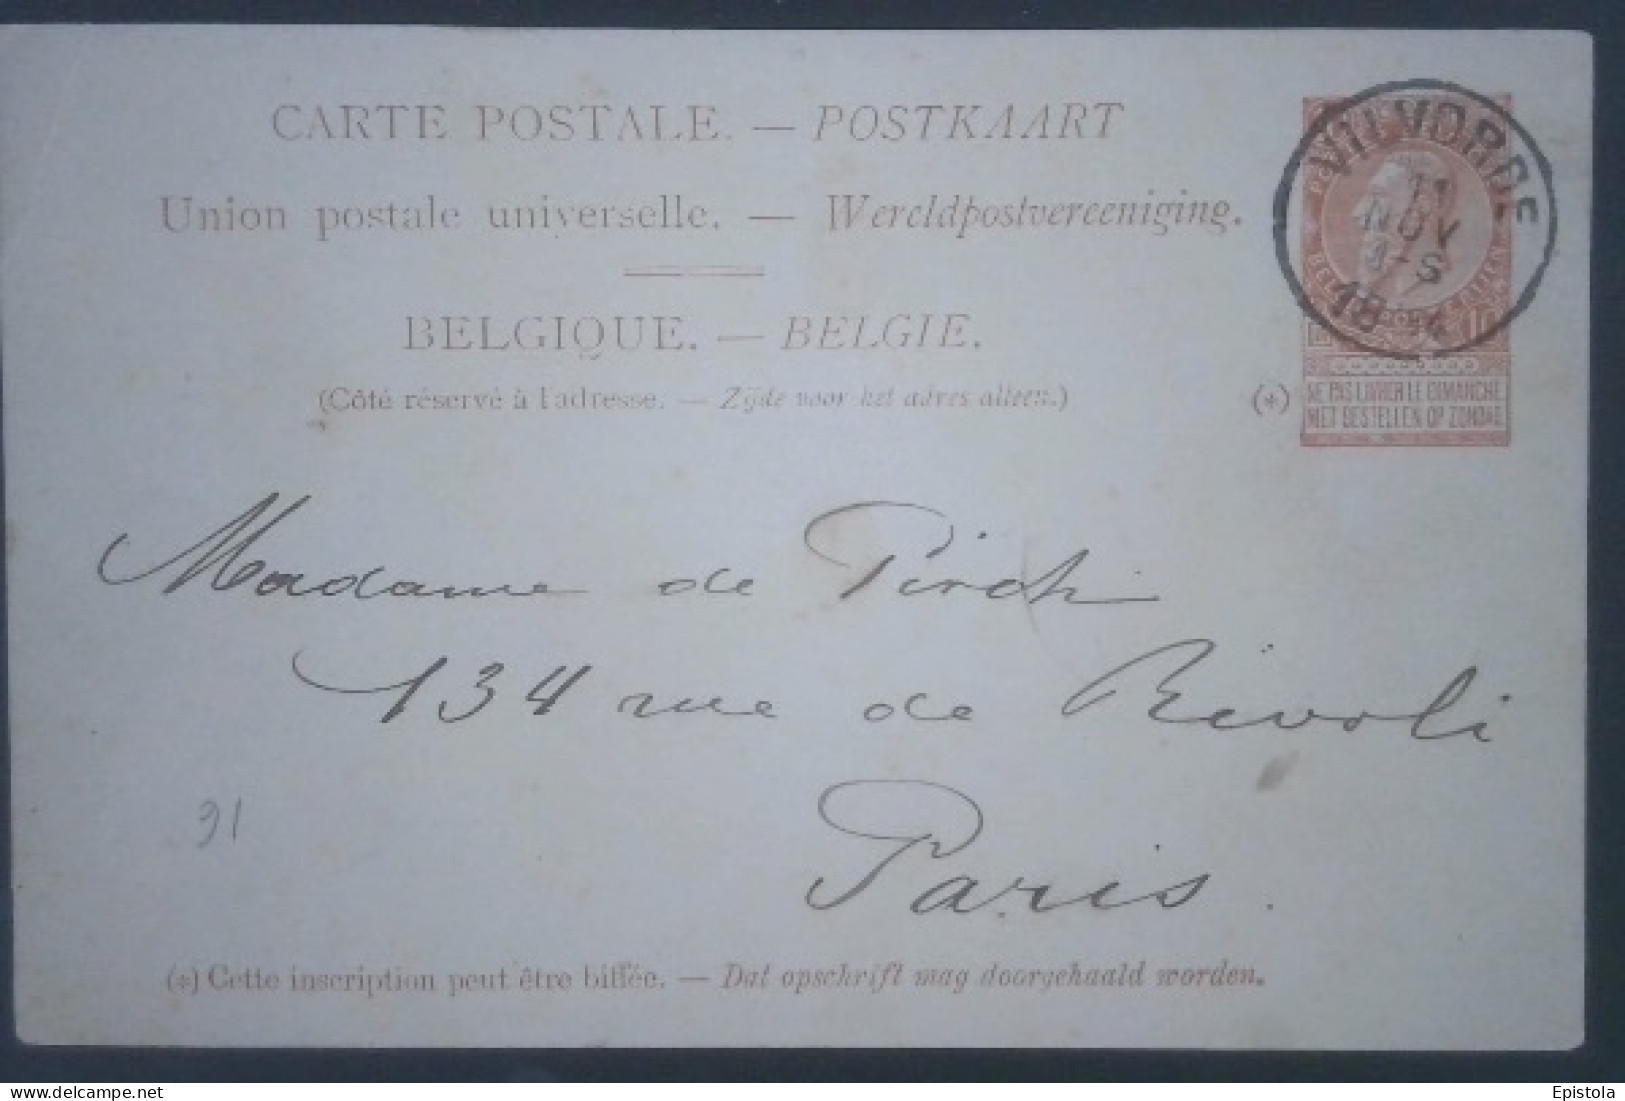 CARTE POSTALE. — POSTKAART
Union postale universelle. — Wereldpostvereeniging.
BELGIQUE. — BELGIE.
(Côté réservé à l'adresse. — Zijde voor het adres alleen.)
VILVORDE
11
NOV
-S
18
10
(*)
NE PAS LIVRER LE DIMANCHE
NIET BESTELLEN OP ZONDAG
Madame de Pirch
134 rue de Rivoli
Paris.
31
(*) Cette inscription peut être biffée. — Dat opschrift mag doorgehaald worden.
Epistola